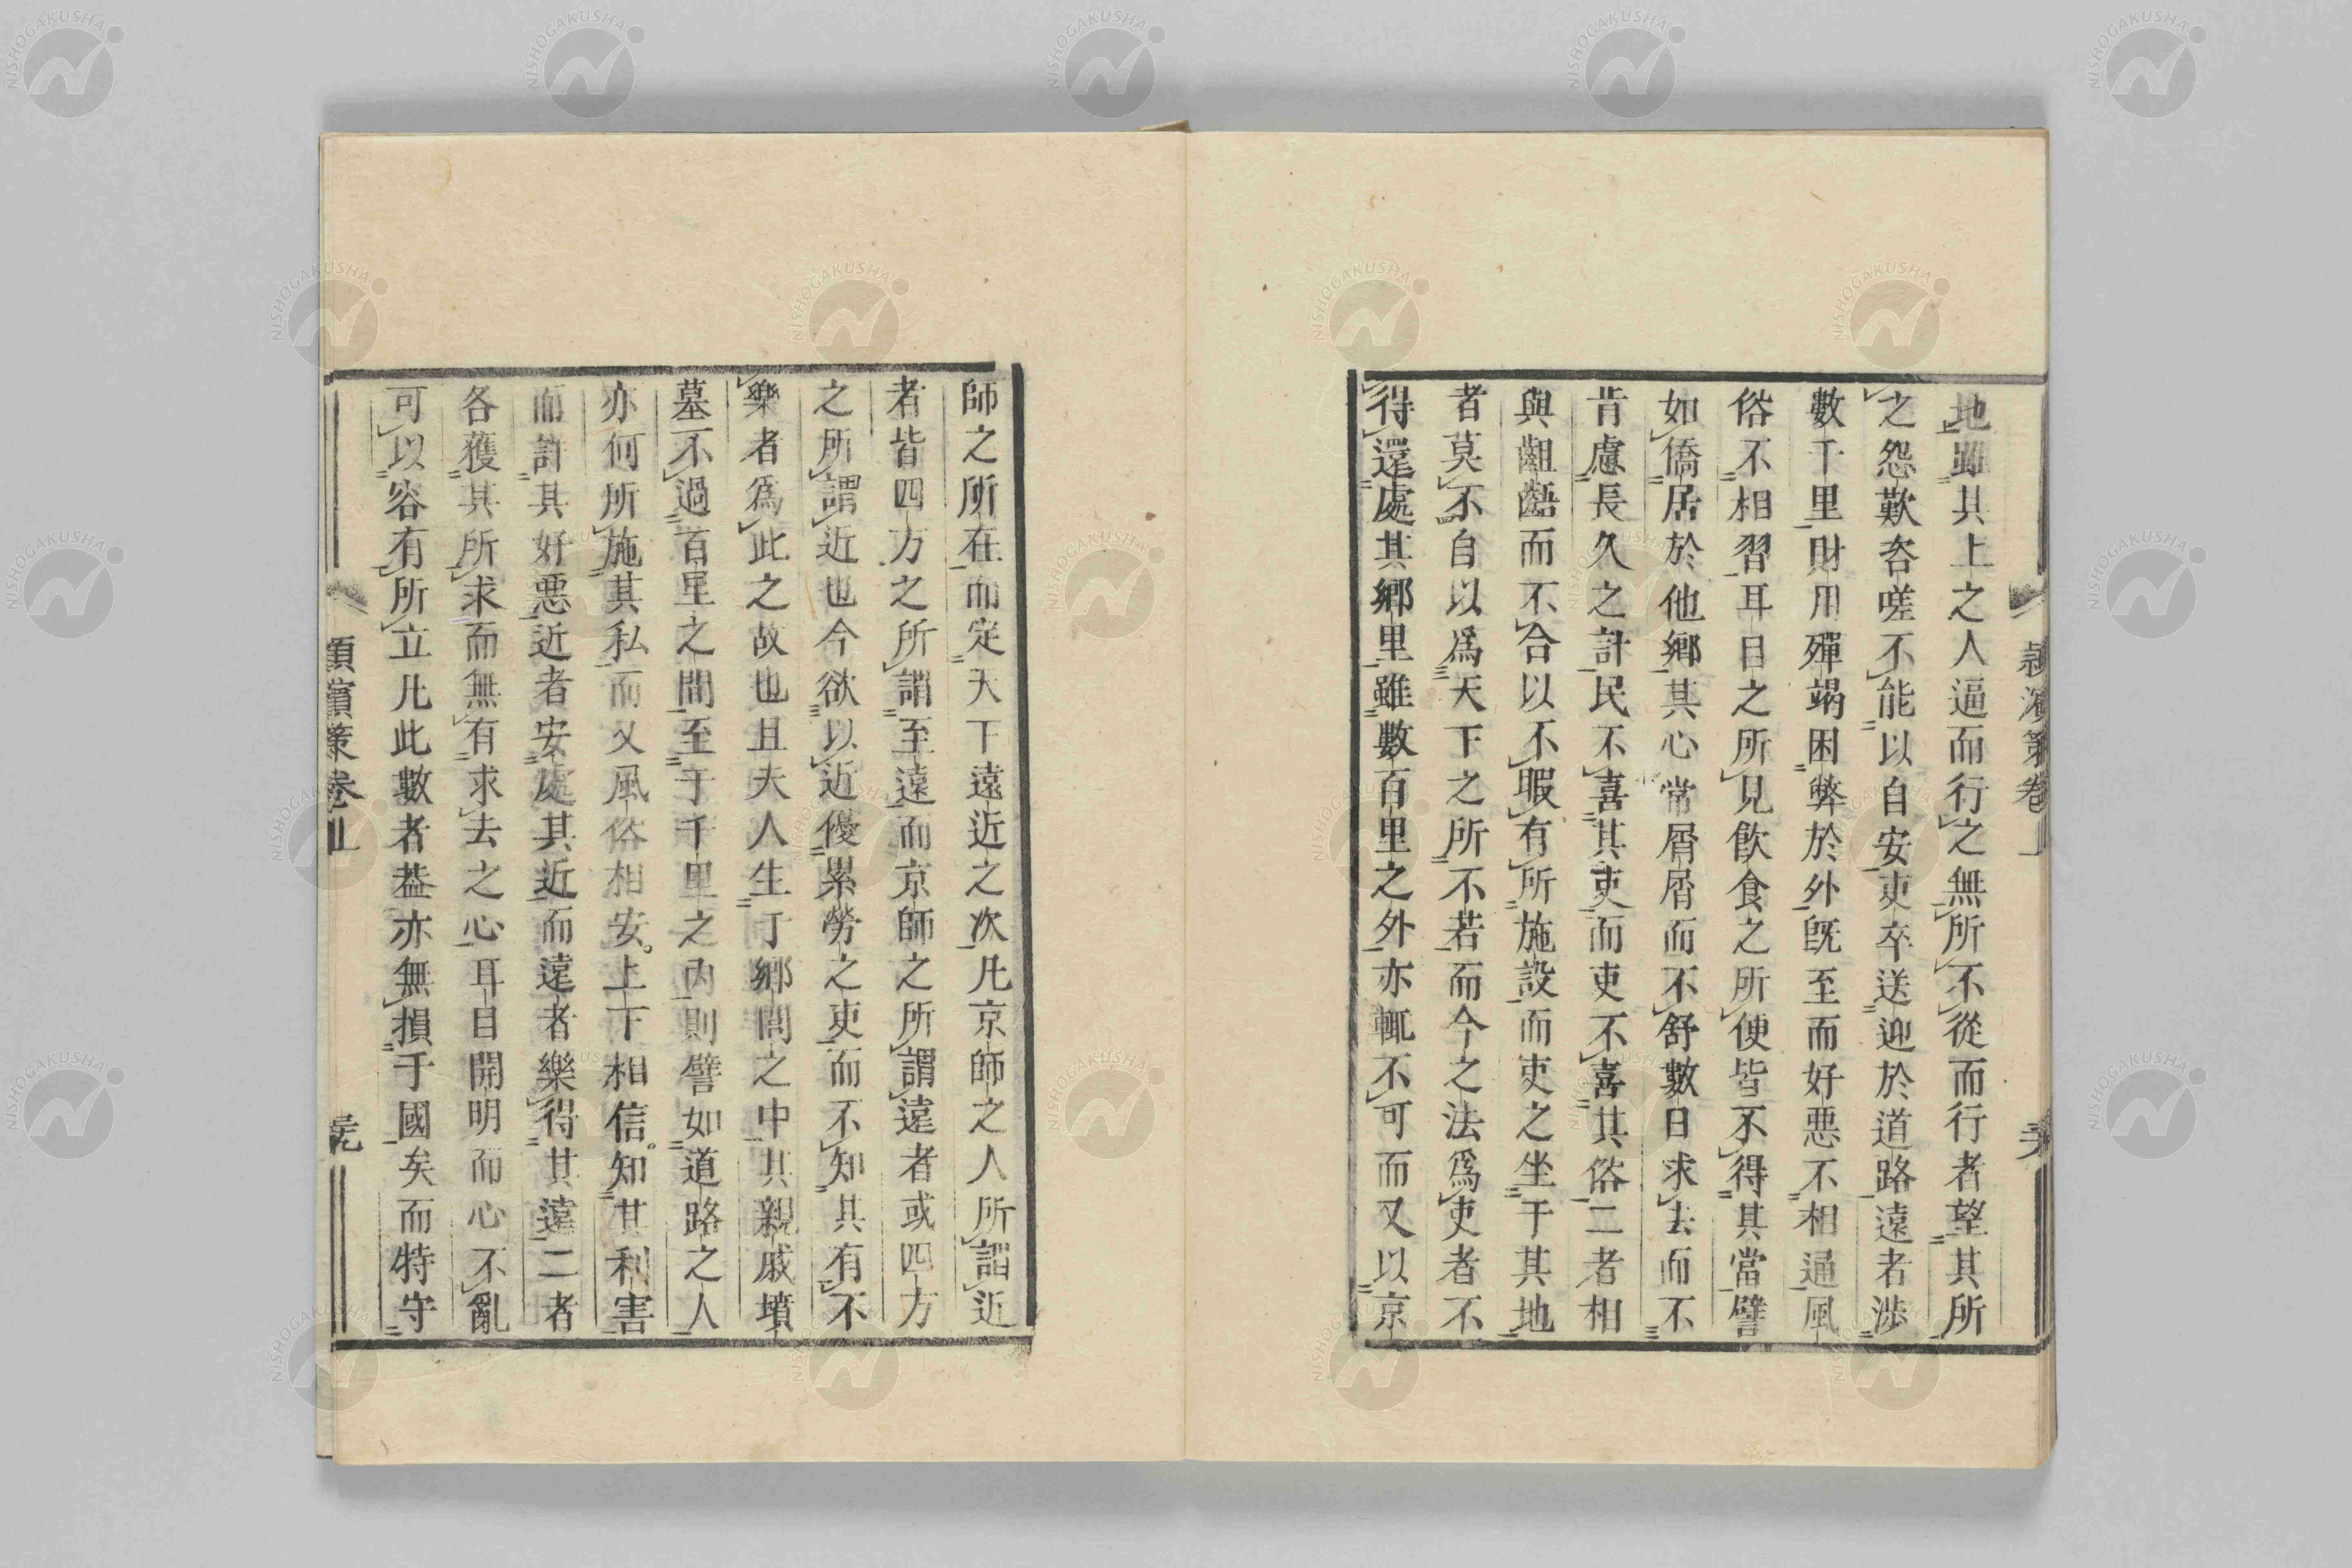 地雖其上之人逼而行之無所不從而行者望其所
之怨歎咨嗟不能以自安吏卒送迎於道路遠者渉
數千里財用殫竭困弊於外既至而好惡不相通風
俗不相習耳目之所見飮食之所便皆不得其當譬
如僑居於他鄉其心常屑屑而不舒數日求去而不
肯慮長久之計民不喜其吏而吏不喜其俗二者相
與齟齬而不合以不暇有所施設而吏之坐于其地
者莫不自以爲天下之所不若而今之法爲吏者不
得還處其鄉里雖數百里之外亦輒不可而又以京
師之所在而定天下遠近之次凡京師之人所謂近
者皆四方之所謂至遠而京師之所謂遠者或四方
之所謂近也今欲以近優累勞之吏而不知其有不
樂者爲此之故也且夫人生于鄉閭之中其親戚墳
墓不過百里之間至于千里之内則譬如道路之人
亦何所施其私而又風俗相安。上下相信。知其利害
而詳其好惡近者安處其近而遠者樂得其遠二者
各獲其所求而無有求去之心耳目開明而心不亂
可以容有所立凡此數者蓋亦無損于國矣而特守
潁濱策卷上
潁濱策卷上